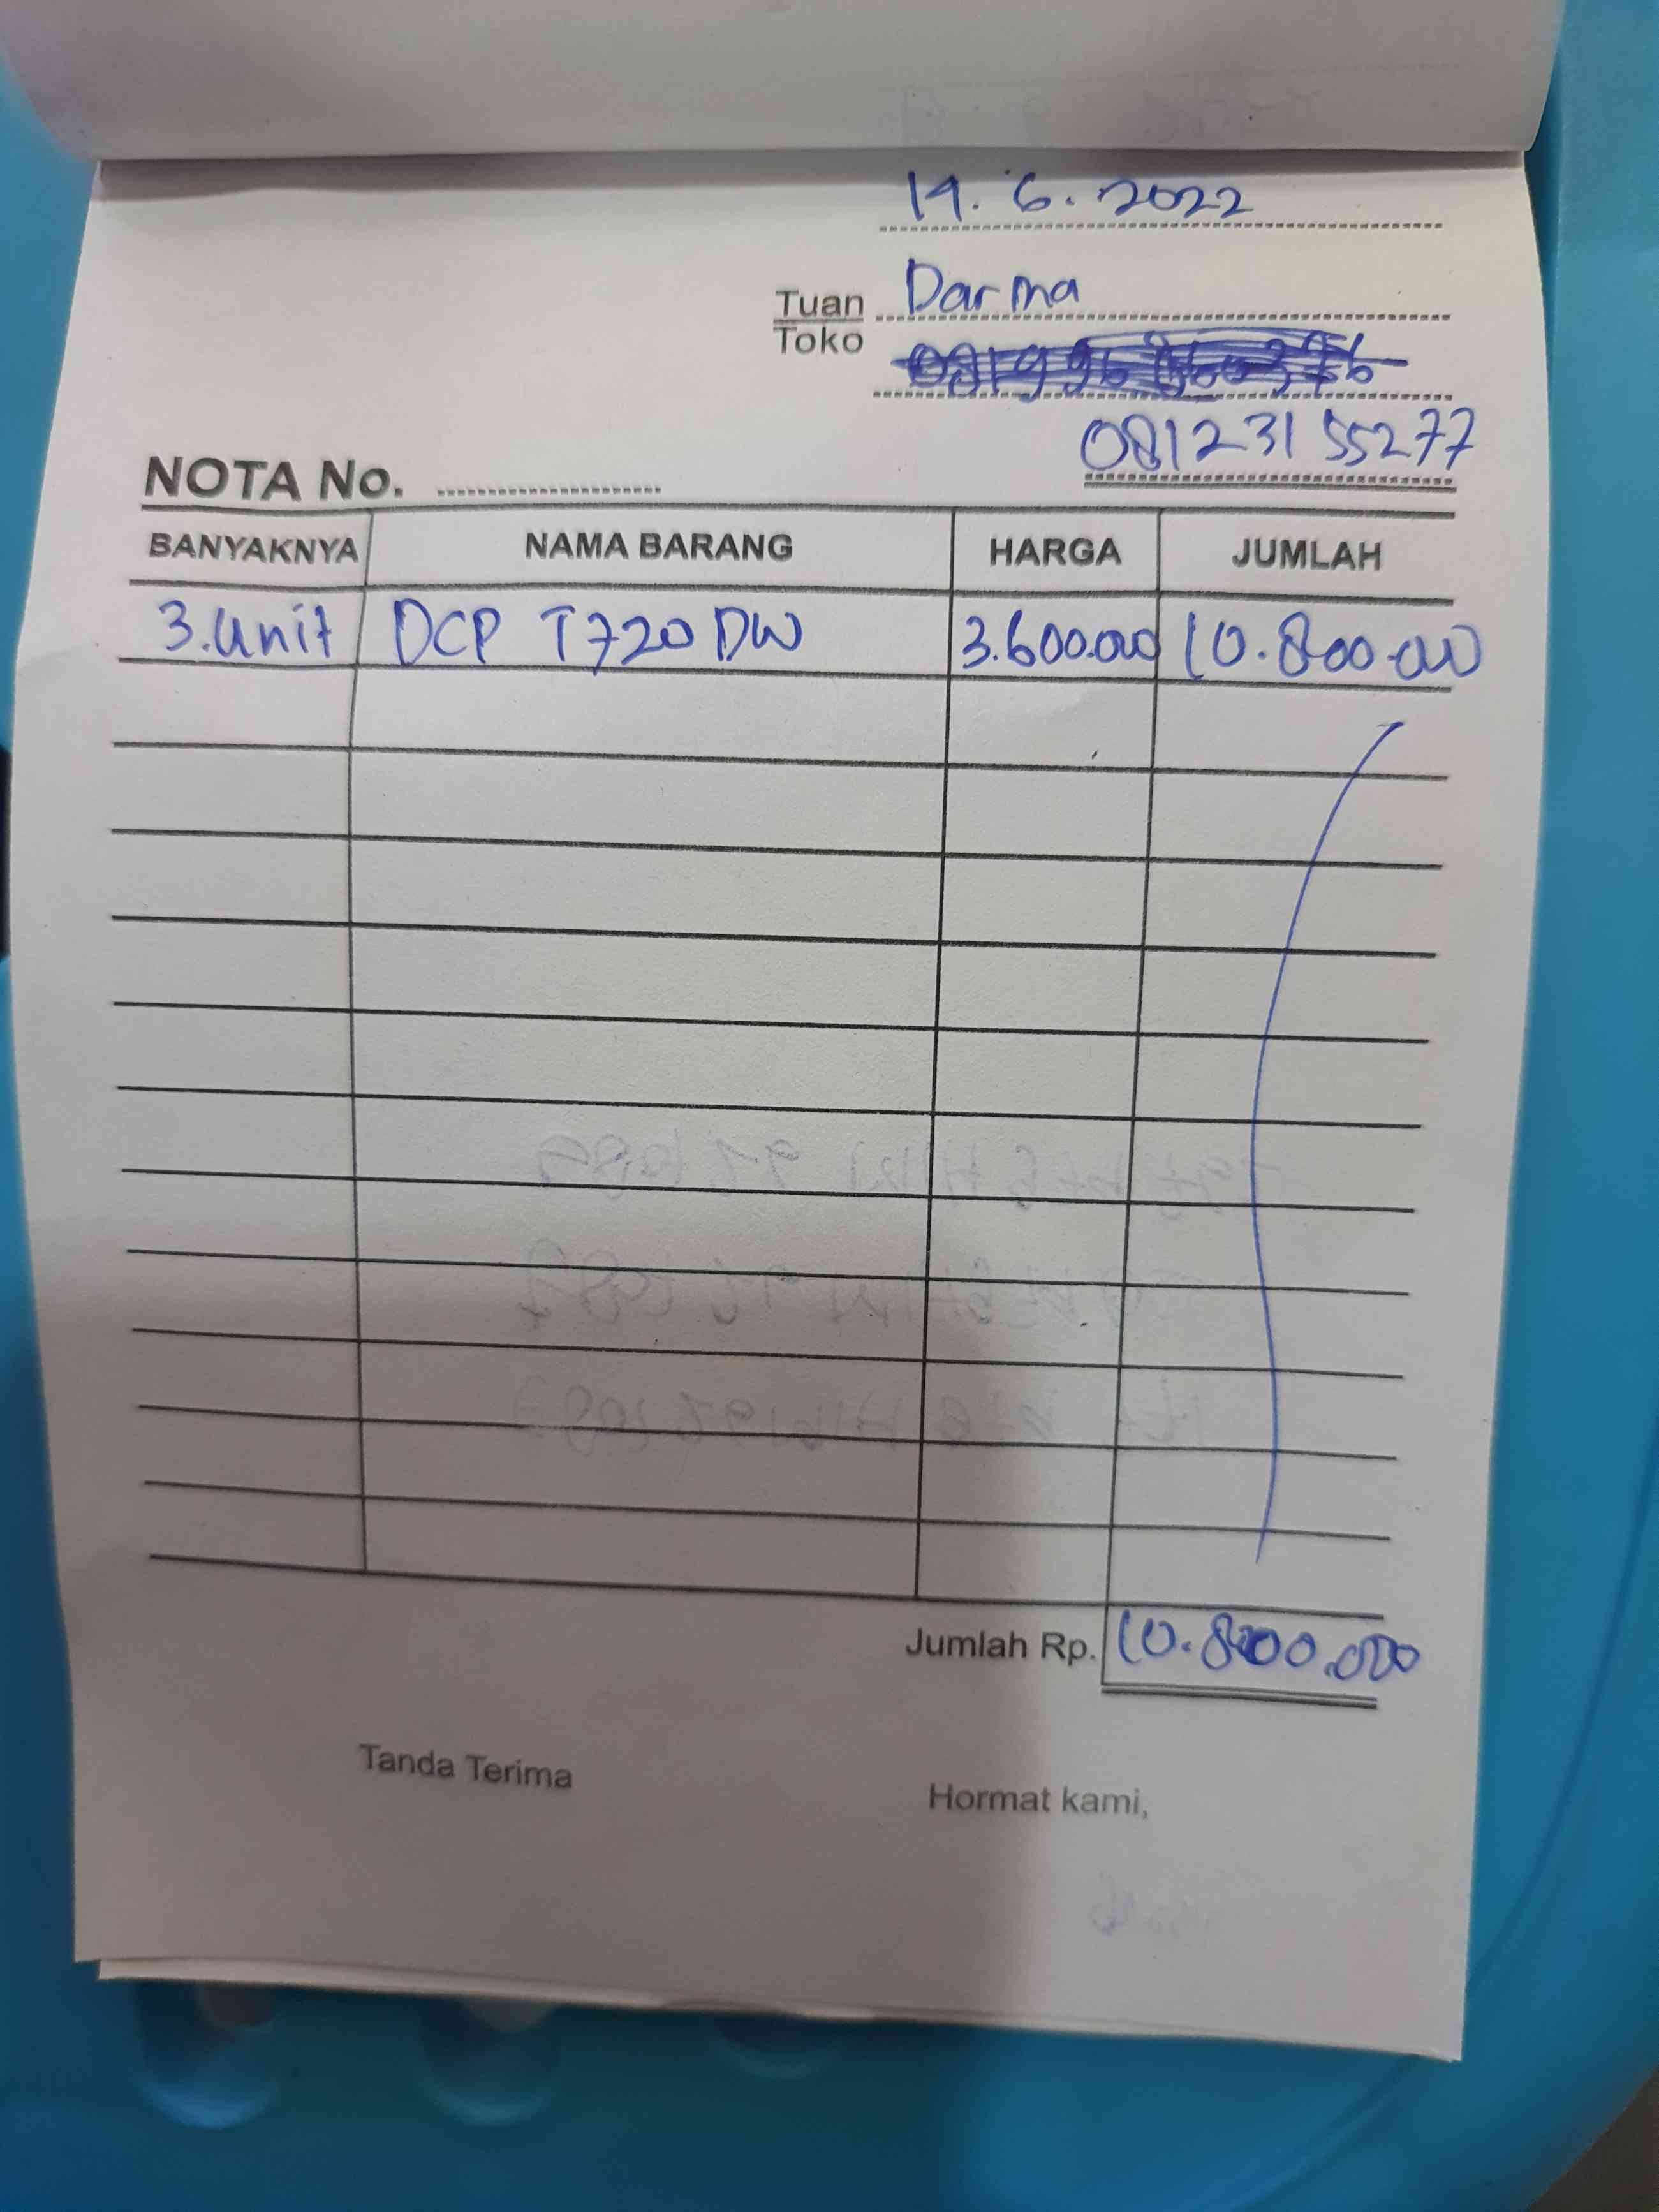 14.6.2022
Tuan Darma
Toko
081231 55277
NOTA No. ........................
BANYAKNYA NAMA BARANG HARGA JUMLAH
3.unit DCP T720 DW 3.600.000 10.800.000
Jumlah Rp. 10.800.000
Tanda Terima Hormat kami,